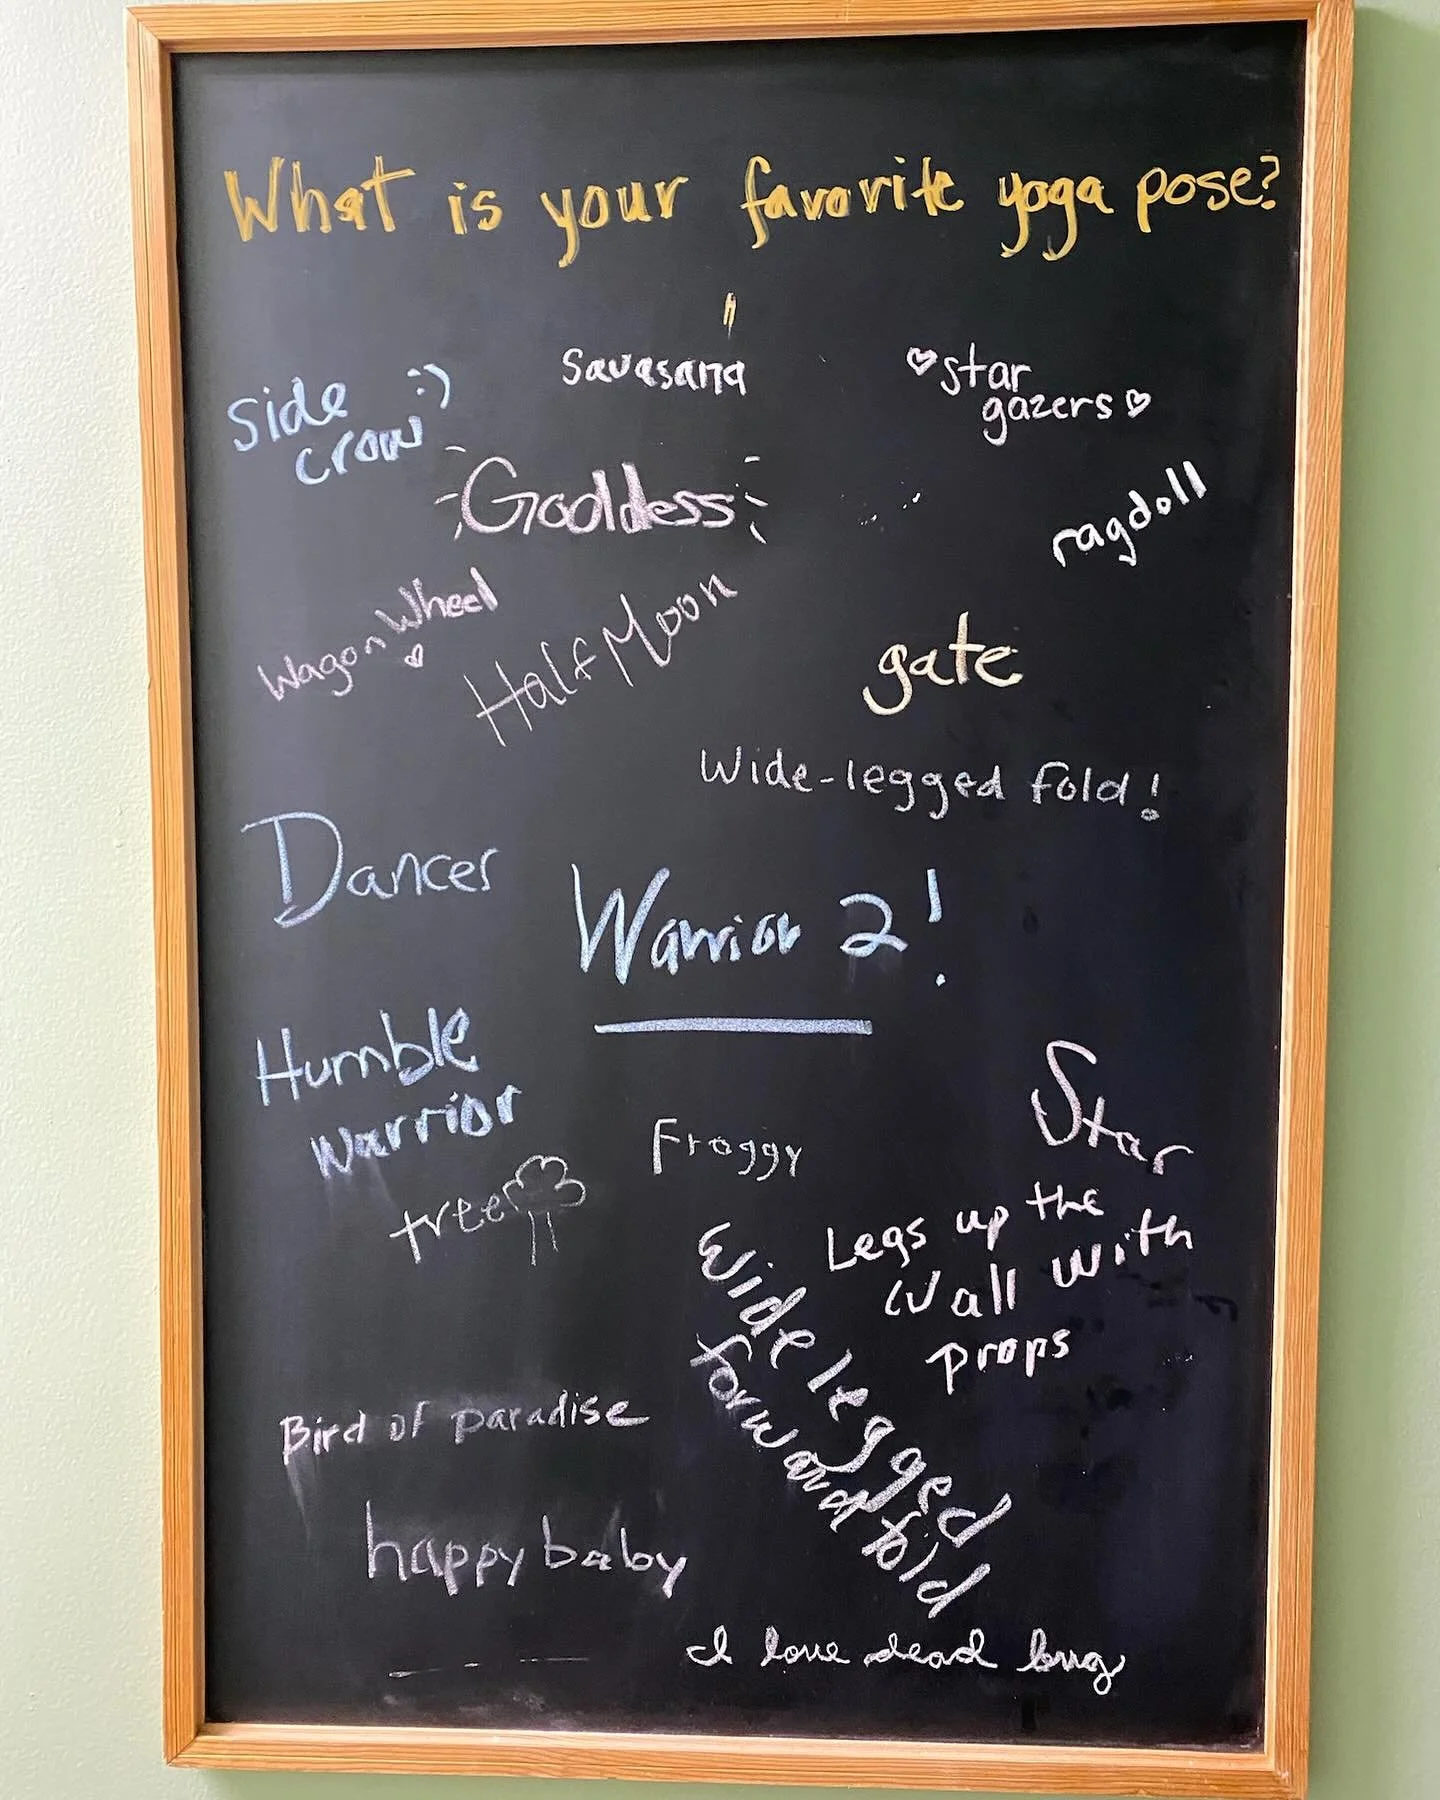 What is your favorite yoga pose?
Savasana
♡star
gazers♡
side :)
crow
Goddess
ragdoll
Wagon Wheel
Half Moon
gate
Wide-legged fold!
Dancer
Warrior 2!
Humble
warrior
Star
Froggy
tree
Legs up the
Wall with
props
Wide legged
forward fold
Bird of paradise
happy baby
I love dead bug